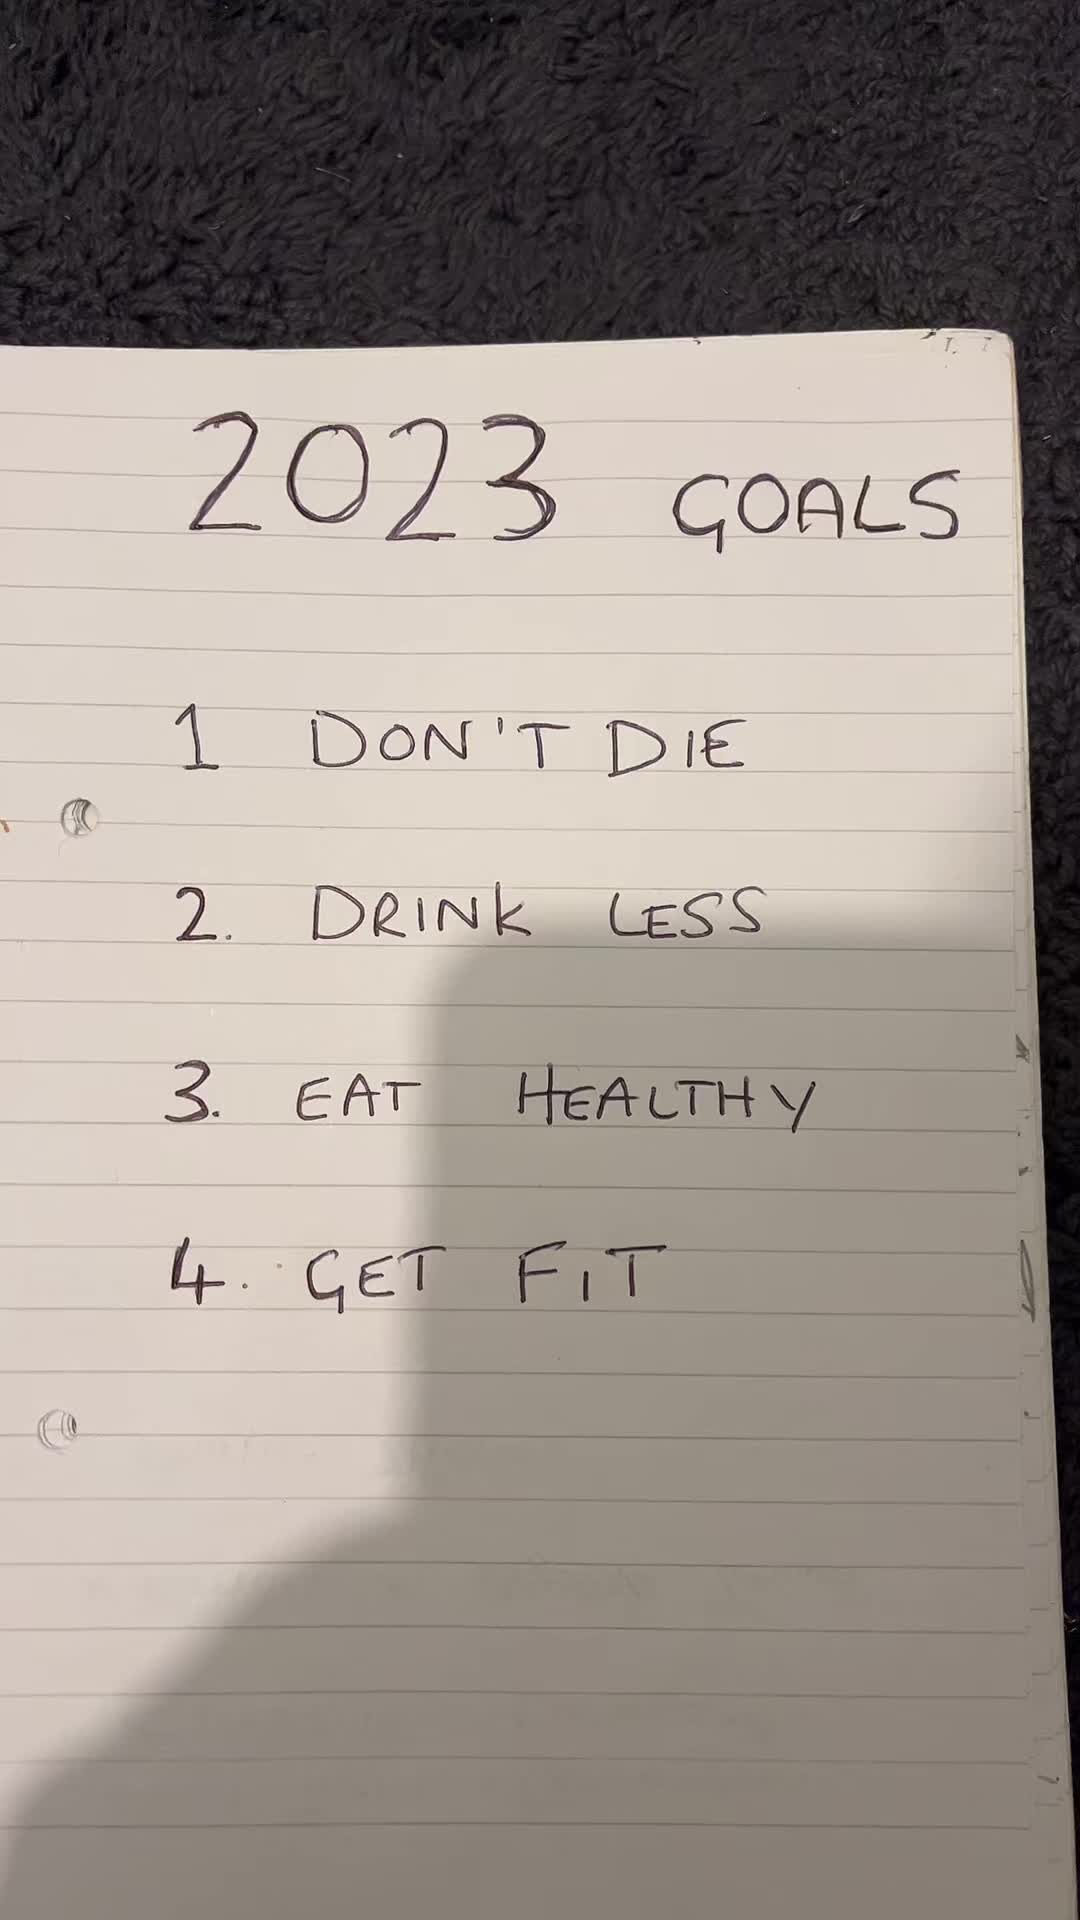 2023 GOALS
1 DON'T DIE
2. DRINK LESS
3. EAT HEALTHY
4. GET FIT